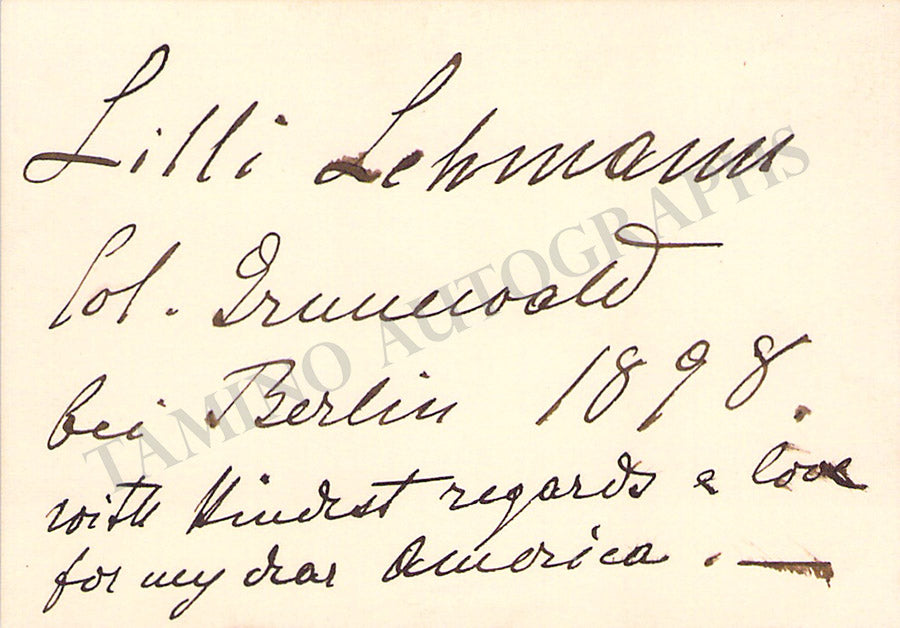 Lilli Lehmann
Col. Grunewald
bei Berlin 1898.
with kindest regards & love
for my dear America. —
TAMINO AUTOGRAPHS